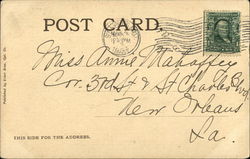 POST CARD.
Miss Annie Mahaffey
Cor. 3rd St & St Charles Ave
New Orleans
La.
THIS SIDE FOR THE ADDRESS.